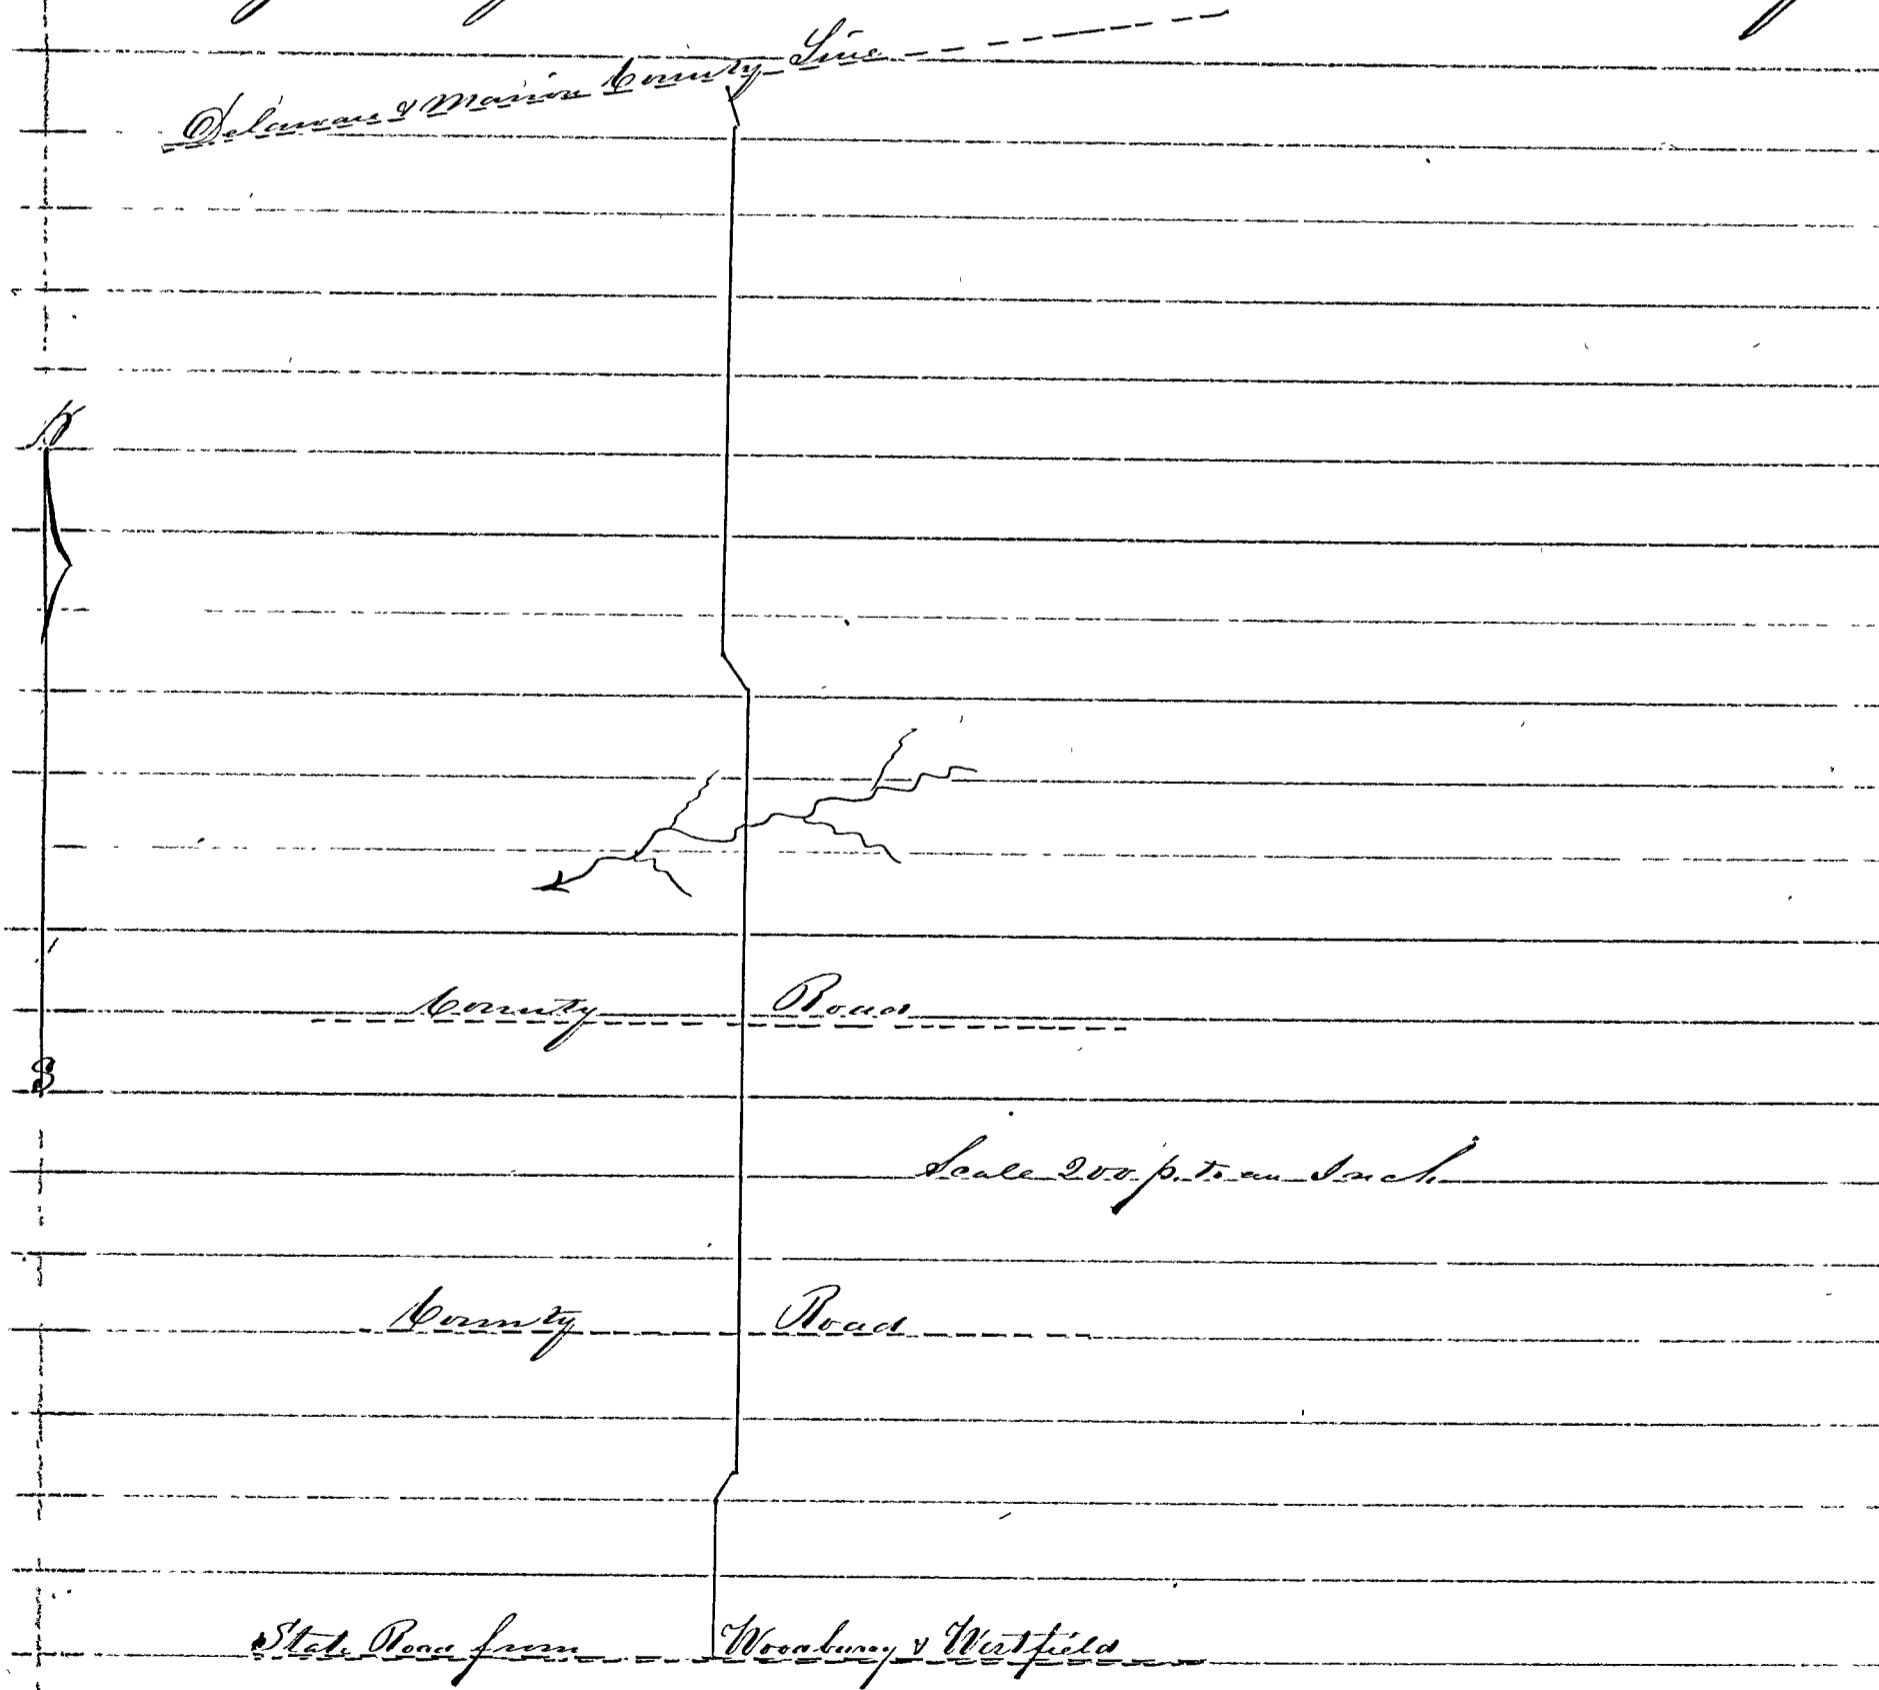 Delaware & Marion County Line
N
County Road
S
Scale 200 p. to an Inch
County Road
State Road from Woodbury & Westfield